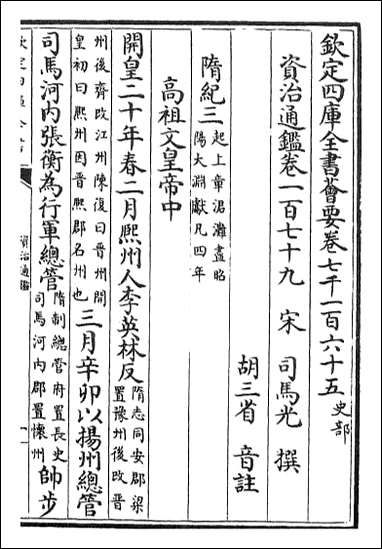 欽定四庫全書薈要卷七千一百六十五 史部
資治通鑑卷一百七十九 宋 司馬光 撰
胡三省 音註
隋紀三 起上章涒灘盡昭陽大淵獻凡四年
高祖文皇帝中
開皇二十年春二月熈州人李英林反 隋志同安郡梁置豫州後改晉
州後齊改江州陳復曰晉州開皇初曰熈州因晉熈郡名州也 三月辛卯以揚州總管
司馬河内張衡為行軍總管 隋制總管府置長史司馬河内郡置懷州 帥步
資治通鑑
一